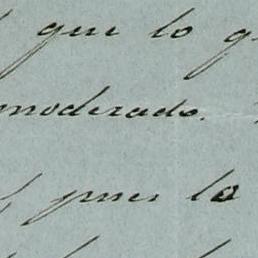 y que lo q
moderado.
y pues la